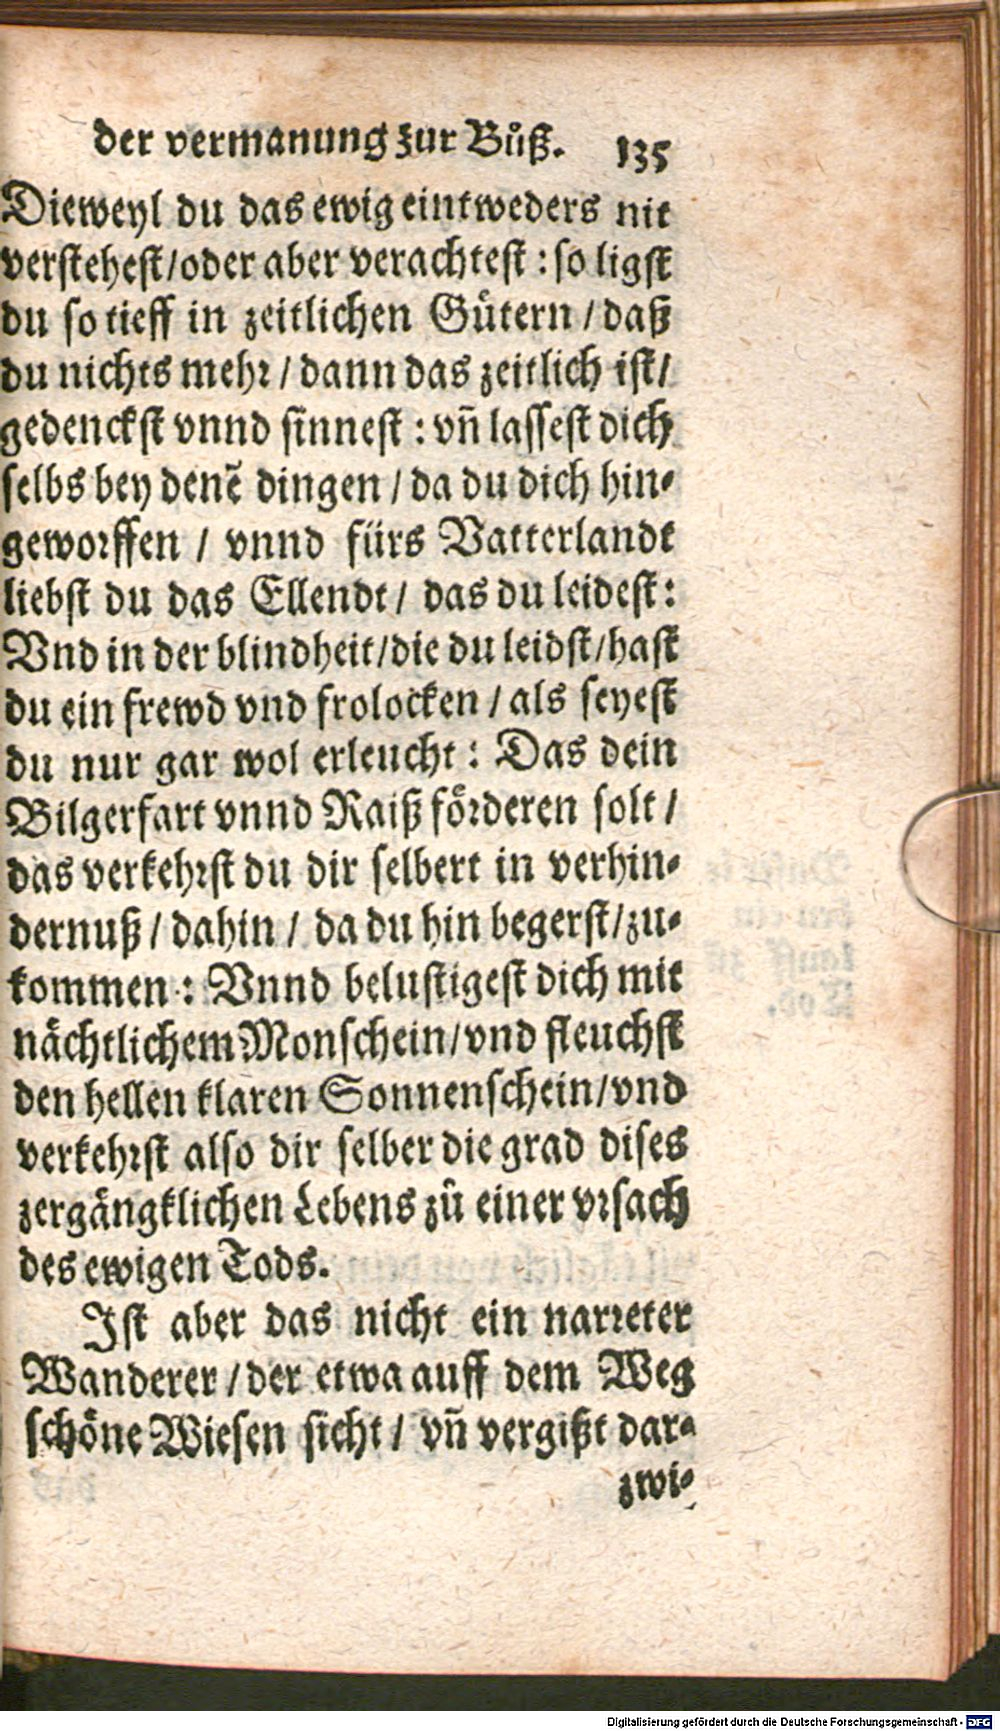 der vermanung zur Bůß. 135
Dieweyl du das ewig eintweders nit
verstehest/oder aber verachtest : so ligst
du so tieff in zeitlichen Gütern / daß
du nichts mehr / dann das zeitlich ist/
gedenckst vnnd sinnest : vn̄ lassest dich
selbs bey denẽ dingen / da du dich hin-
geworffen / vnnd fürs Vatterlandt
liebst du das Ellendt / das du leidest:
Vnd in der blindheit/die du leidst/hast
du ein frewd vnd frolocken / als seyest
du nur gar wol erleucht : Das dein
Bilgerfart vnnd Raiß förderen solt /
das verkehrst du dir selbert in verhin-
dernuß / dahin / da du hin begerst/zu-
kommen : Vnnd belustigest dich mit
nächtlichem Monschein/vnd fleuchst
den hellen klaren Sonnenschein/vnd
verkehrst also dir selber die grad dises
zergängklichen Lebens zů einer vrsach
des ewigen Tods.
Ist aber das nicht ein narreter
Wanderer / der etwa auff dem Weg
schöne Wiesen sicht / vn̄ vergißt dar-
zwi-
Digitalisierung gefördert durch die Deutsche Forschungsgemeinschaft - DFG